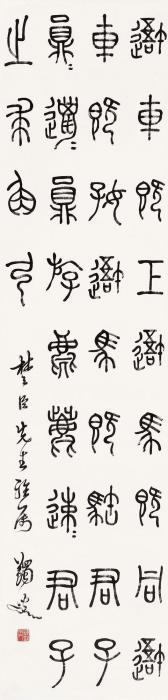 吾車既工吾馬既同吾
車既好吾馬既駘君子
員=邋=員斿麀鹿速=君子
之求角弓
楚臣先生雅屬 蠲叟